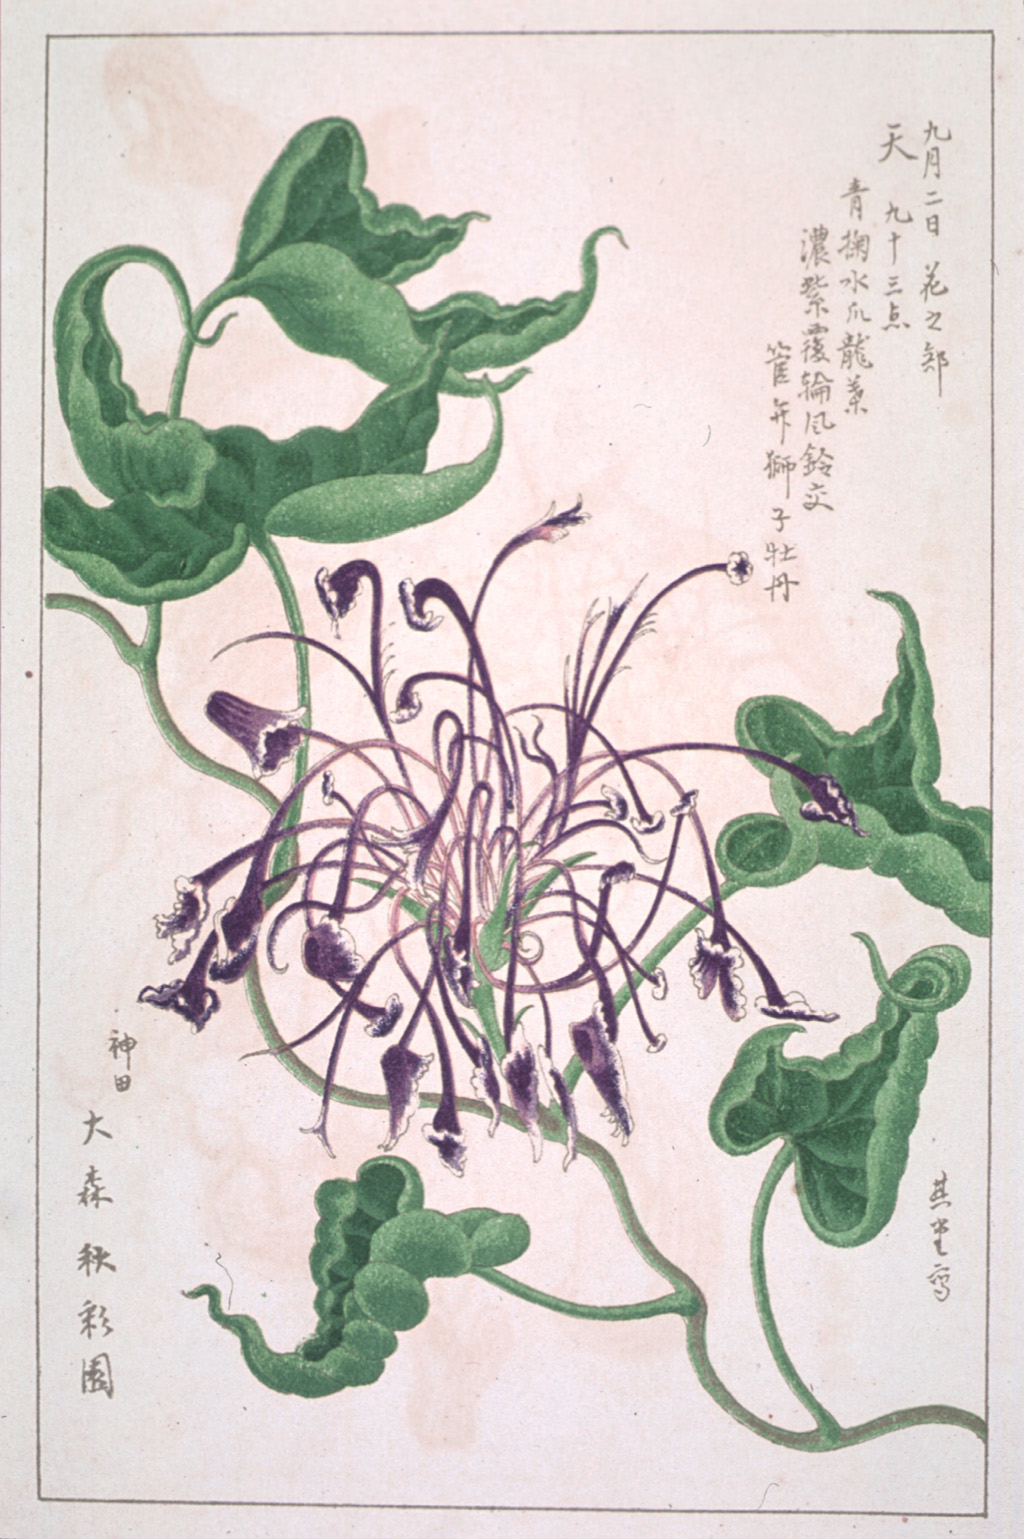 九月二日 花之部
天 九十三点
青掬水爪龍葉
濃紫覆輪風鈴交
管弁獅子牡丹
神田
大森秋彩園
其堂写